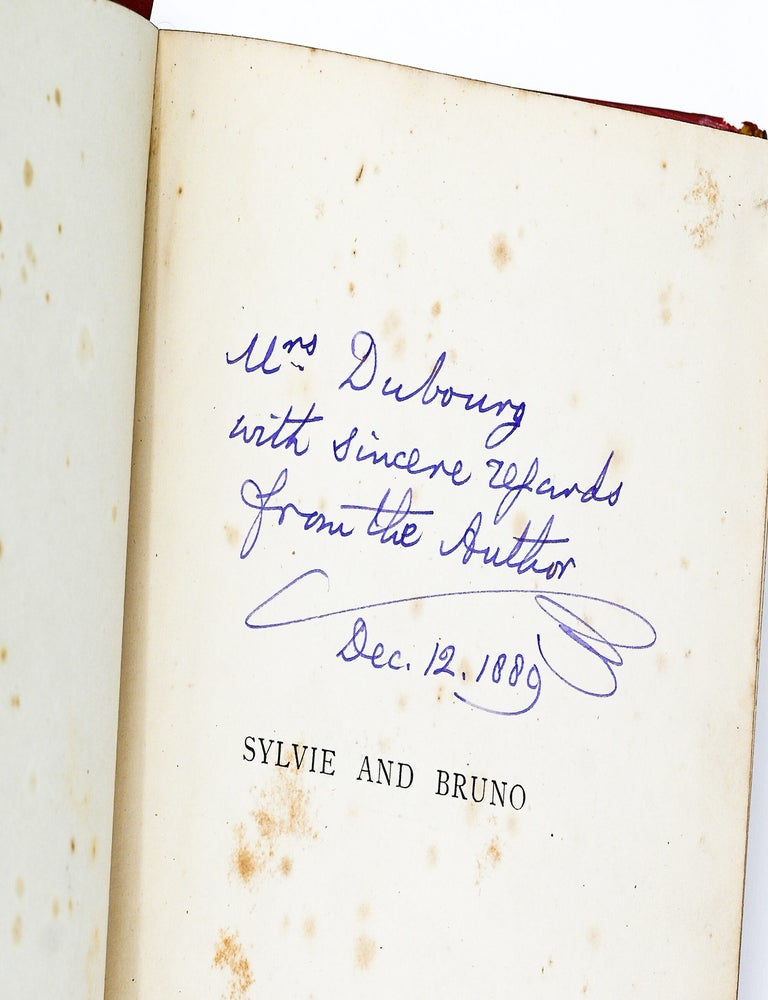 Mrs Dubourg
with sincere regards
from the Author
Dec. 12. 1889
SYLVIE AND BRUNO